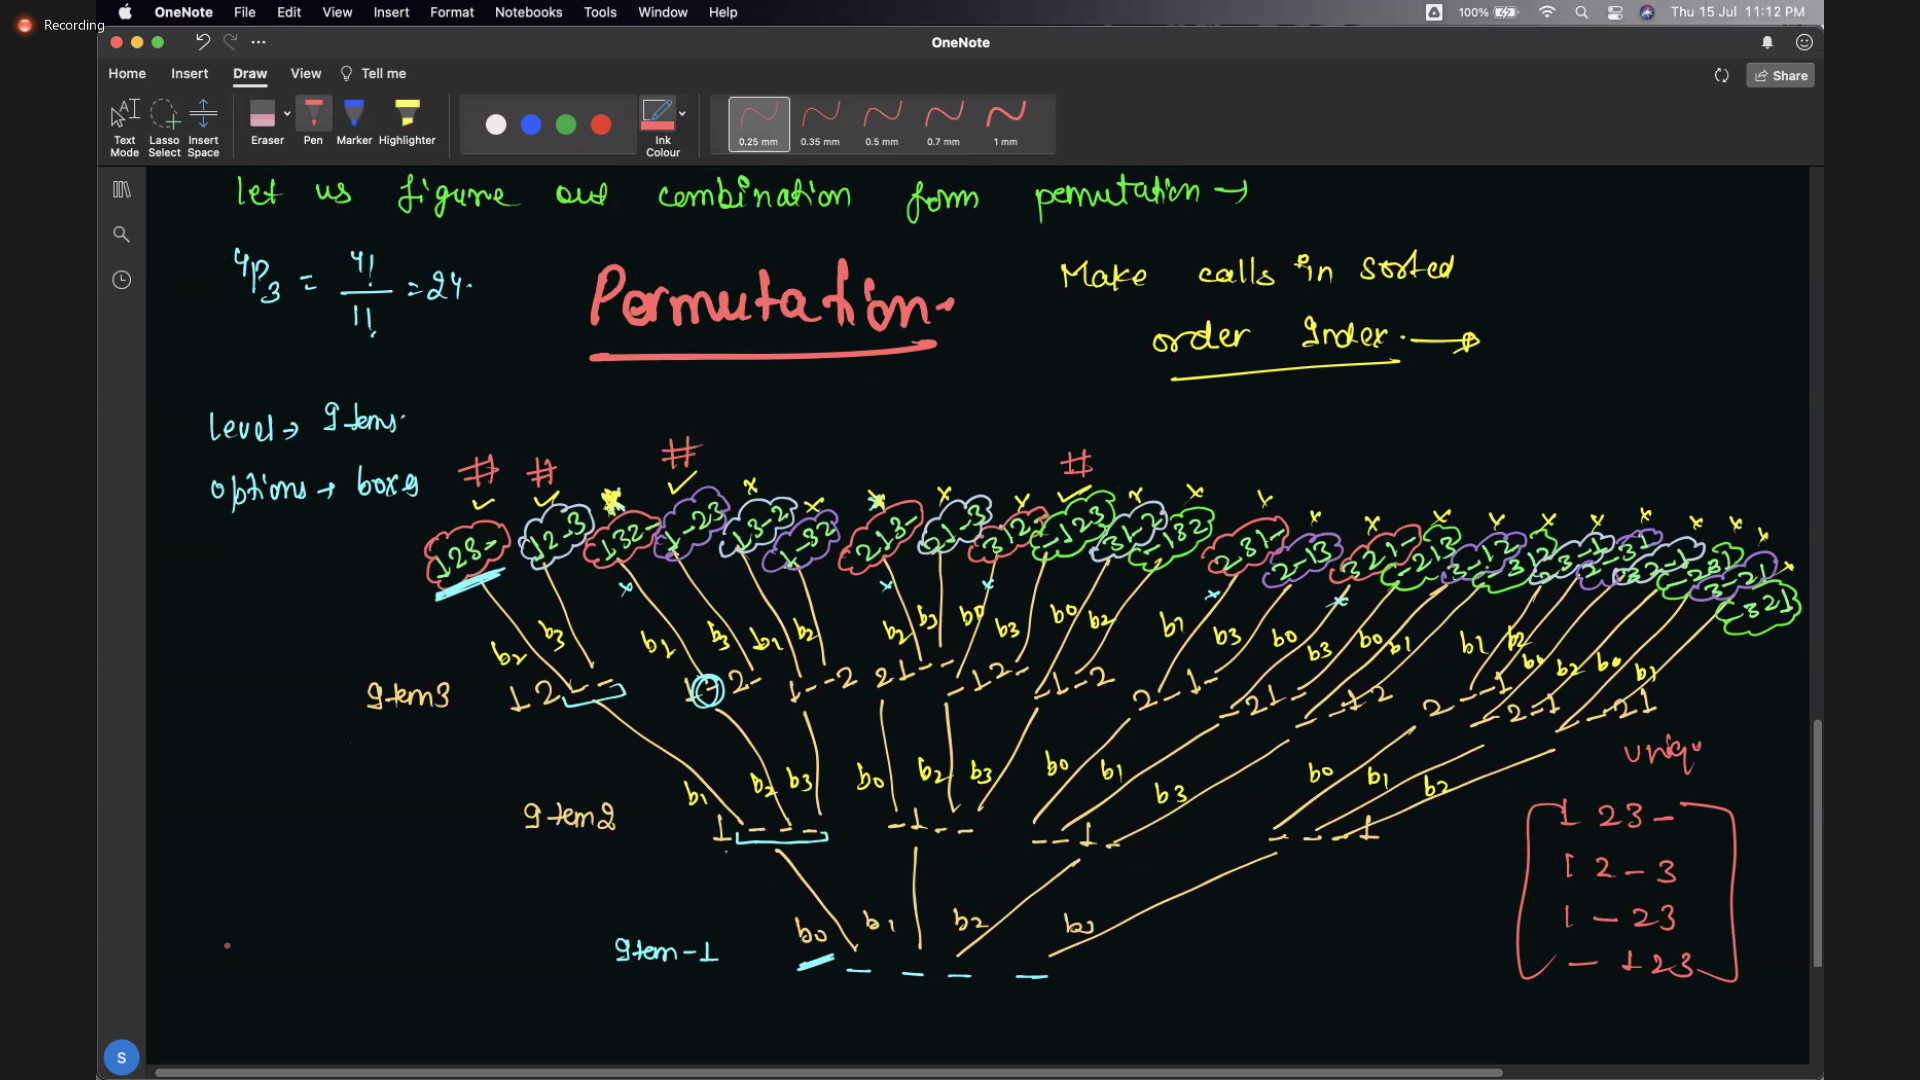 Recording
OneNote File Edit View Insert Format Notebooks Tools Window Help
100% Thu 15 Jul 11:12 PM
OneNote
Home Insert Draw View Tell me
Share
Text Mode
Lasso Select
Insert Space
Eraser
Pen
Marker
Highlighter
Ink Colour
0.25 mm 0.35 mm 0.5 mm 0.7 mm 1 mm
let us figure out combination form permutation →
4P3 = 4!/1! = 24.
Permutation.
Make calls in sorted
order Index. →
level → Items.
options → boxes
# # # #
123- 12-3 132- 1-23 13-2 1-32 213- 21-3 312- -123 31-2 -132 231- 2-13 321- -213 3-12 -312 23-1 2-31 32-1 -231 3-21 -321
b2 b3 b1 b3 b1 b2 b2 b3 b0 b3 b0 b2 b1 b3 b0 b3 b0 b1 b1 b2 b0 b2 b0 b1
Item3 12-- 1-2- 1--2 21-- -12- -1-2 2-1- -21- --12 2--1 -2-1 --21
b1 b2 b3 b0 b2 b3 b0 b1 b3 b0 b1 b2
Item2 1--- -1-- --1- ---1
b0 b1 b2 b3
Item-1 - - - -
unique
1 23-
1 2-3
1 - 23
- 123
S